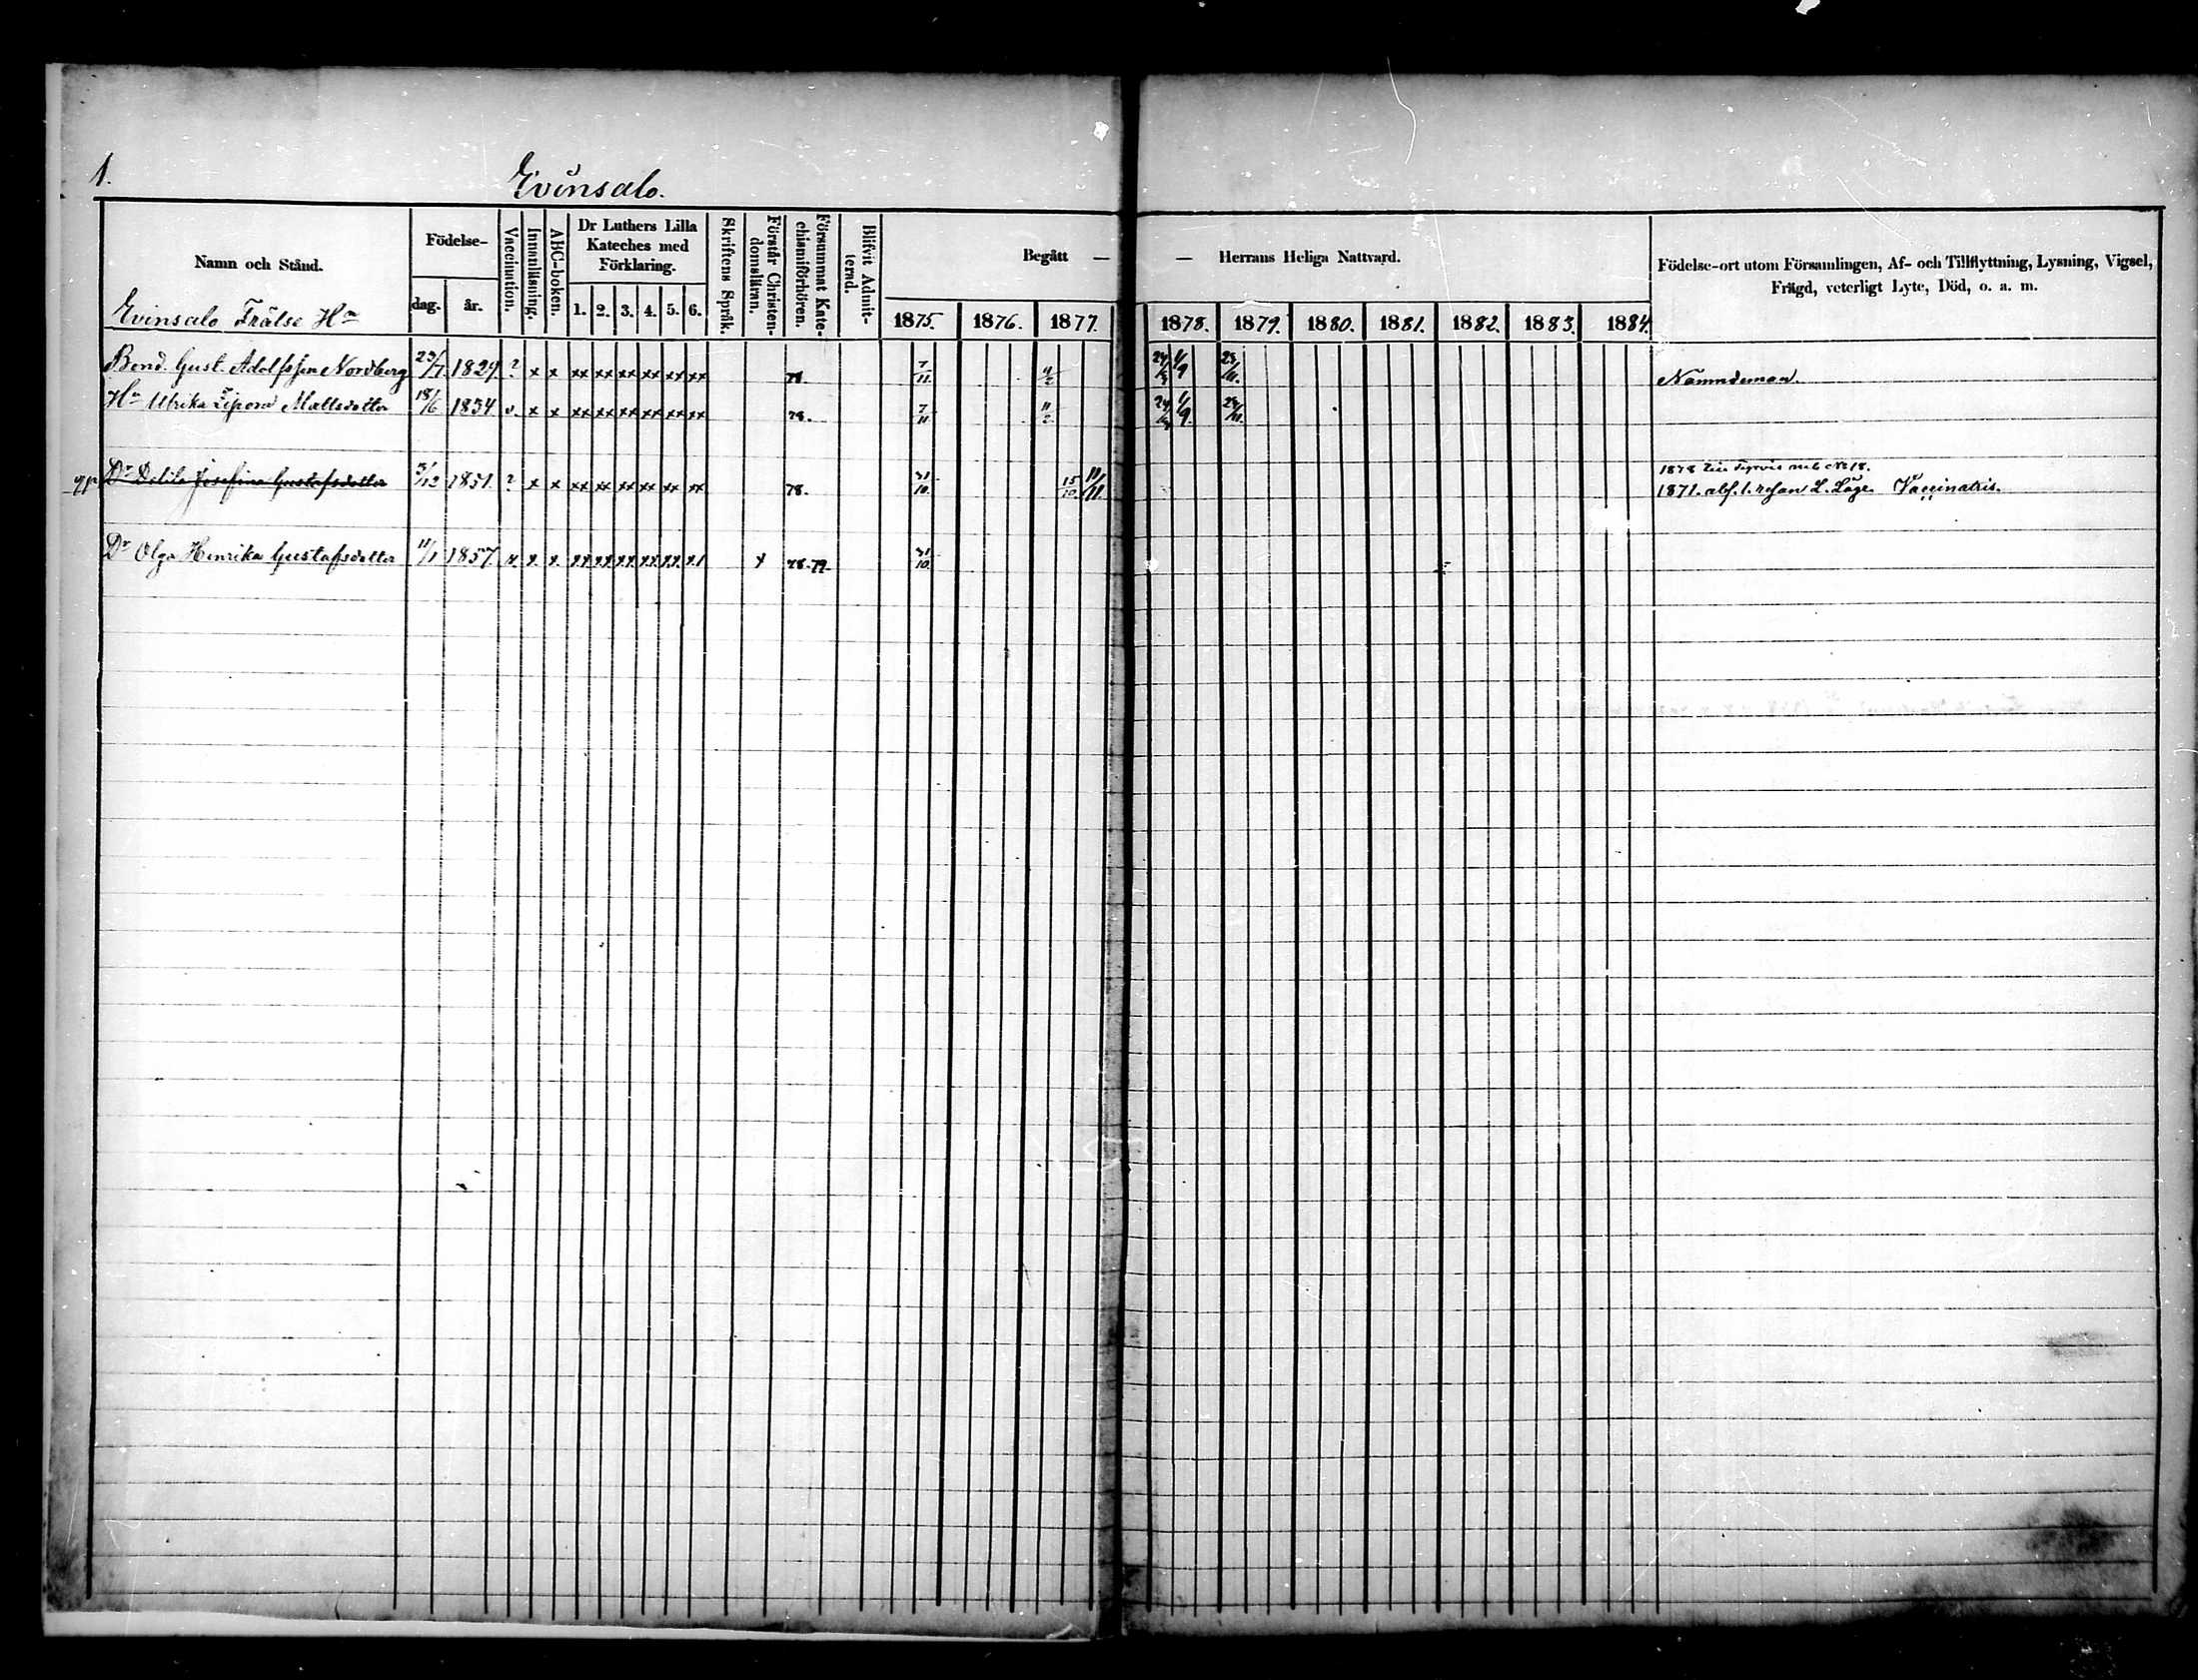 1.
Evinsalo.
Namn och Stånd.
Födelse-
dag.
år.
Vaccination.
Innanläsning.
ABC-boken.
Dr Luthers Lilla
Kateches med
Förklaring.
1. 2. 3. 4. 5. 6.
Skriftens Språk.
Förstår Christen-
domsläran.
Försummat Kate-
chismiförhören.
Blifvit Admit-
terad.
Begått — — Herrans Heliga Nattvard.
1875. 1876. 1877. 1878. 1879. 1880. 1881. 1882. 1883. 1884.
Födelse-ort utom Församlingen, Af- och Tillflyttning, Lysning, Vigsel,
Frägd, veterligt Lyte, Död, o. a. m.
Evinsalo Frälse Hn
Bond. Gust. Adolfsson Nordberg 23/7 1829. ? x x xx xx xx xx xx xx 78. 7/11. 11/2 1/9 Nämndeman.
Hu Ulrika Zipora Mattsdotter 18/6 1834 v. x x xx xx xx xx xx xx 78. 7/11 11/2 1/9.
Dr Delila Josefina Gustafsdotter 1851. ? x x xx xx xx xx xx xx 78. 31/10. 15/10 11/11
1878
1871. Vaccinatris.
Dr Olga Henrika Gustafsdotter 11/1 1857. v. x. x. xx xx xx xx xx x1 x 78.79. 31/10.